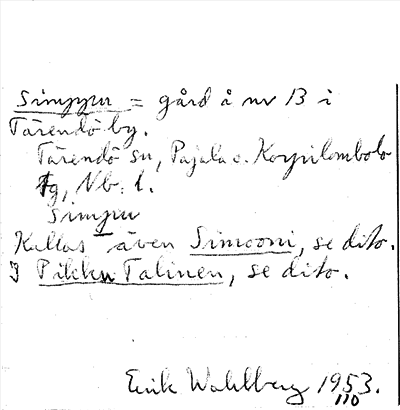 Simppu = gård å nr 13 i
Tärendö by.
Tärendö sn, Pajala o. Korpilombolo
tg, Nb. l.
Simpu
Kallas även Simooni, se dito.
I Pikku Talinen, se dito.
Erik Wahlberg 1953.
110